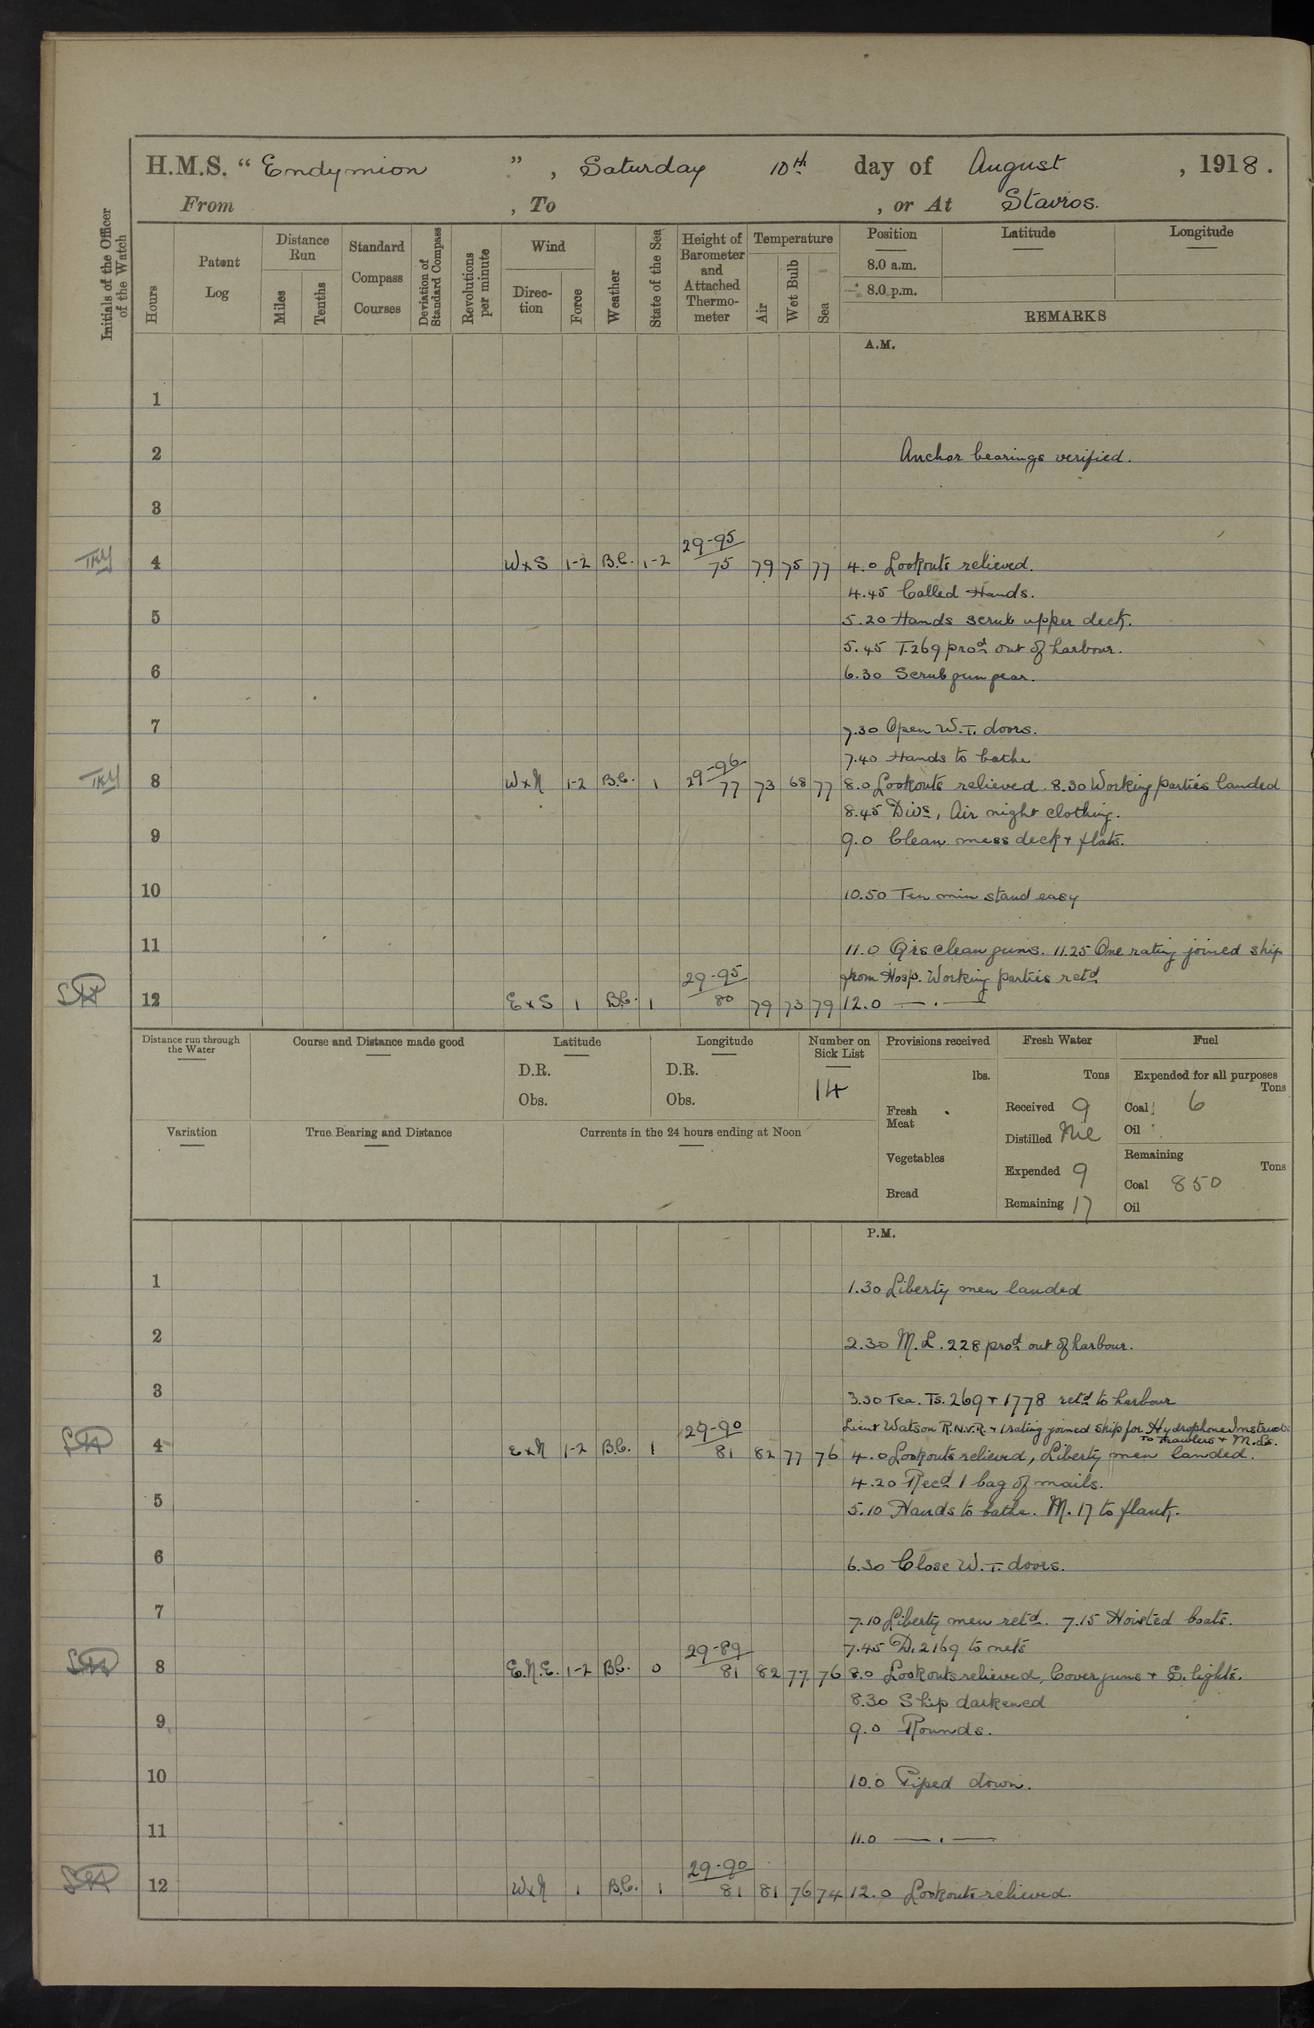 H.M.S. “ Endymion ” , Saturday 10th day of August , 1918 .
From , To , or At Stavros.
Initials of the Officer of the Watch
Hours
Patent Log
Distance Run
Miles
Tenths
Standard Compass Courses
Deviation of Standard Compass
Revolutions per minute
Wind
Direc-tion
Force
Weather
State of the Sea
Height of Barometer and Attached Thermo-meter
Temperature
Air
Wet Bulb
Sea
Position
8.0 a.m.
8.0 p.m.
Latitude
Longitude
REMARKS
A.M.
1
2 Anchor bearings verified.
3
29-95
4 WxS 1-2 B.C. 1-2 75 79 75 77 4.0 Lookouts relieved.
4.45 Called Hands.
5 5.20 Hands scrub upper deck.
5.45 T.269 procd out of harbour.
6 6.30 Scrub gun gear.
7 7.30 Open W.T. doors.
7.40 Hands to bathe
29-96
8 WxN 1-2 B.C. 1 77 73 68 77 8.0 Lookouts relieved. 8.30 Working parties landed
8.45 Divs, Air night clothing.
9 9.0 Clean mess deck + flats.
10 10.50 Ten min stand easy
11 11.0 Qrs clean guns. 11.25 One rating joined ship
29-95 from Hosp. Working parties retd
12 ExS 1 B.C. 1 80 79 73 79 12.0 — . —
Distance run through the Water
Course and Distance made good
Latitude
D.R.
Obs.
Longitude
D.R.
Obs.
Number on Sick List
14
Provisions received
lbs.
Fresh Meat
Vegetables
Bread
Fresh Water
Tons
Received 9
Distilled Nil
Expended 9
Remaining 17
Fuel
Expended for all purposes
Tons
Coal 6
Oil
Remaining
Tons
Coal 850
Oil
Variation
True Bearing and Distance
Currents in the 24 hours ending at Noon
P.M.
1 1.30 Liberty men landed
2 2.30 M.L. 228 procd out of harbour.
3 3.30 Tea. Ts. 269 + 1778 retd to harbour
Lieut Watson R.N.V.R. + 1 rating joined ship for Hydrophone Instruct
29-90 to trawlers + M.Ls.
4 ExN 1-2 B.C. 1 81 82 77 76 4.0 Lookouts relieved, Liberty men landed.
4.20 Recd 1 bag of mails.
5 5.10 Hands to bathe. M.17 to flank.
6 6.30 Close W.T. doors.
7 7.10 Liberty men retd. 7.15 Hoisted boats.
29-89 7.45 D.2169 to nets
8 E.N.E. 1-2 B.C. 0 81 82 77 76 8.0 Lookouts relieved, Cover guns + S. lights.
8.30 Ship darkened
9 9.0 Rounds.
10 10.0 Piped down.
11 11.0 — . —
29-90
12 WxN 1 B.C. 1 81 81 76 74 12.0 Lookouts relieved.